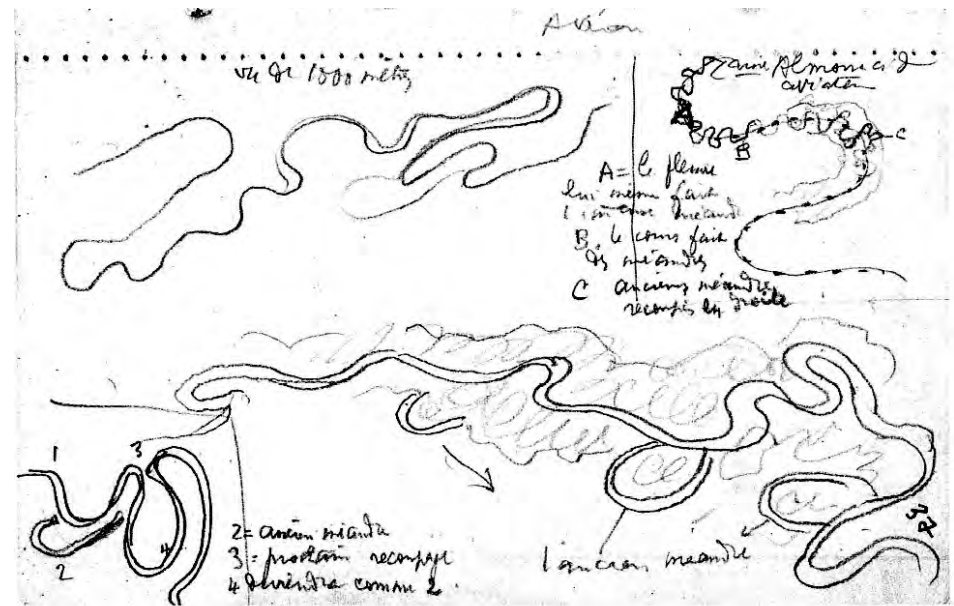 Avion
vu de 1000 mètres
aviateur
A = le fleuve
lui même fait
1 immense méandre
B. le cours fait
des méandres
C anciens méandres
recoupés en droite
A
B
C
1
2
3
4
2 = ancien méandre
3 = prochain recoupage
4 deviendra comme 2.
1 ancien méandre
37